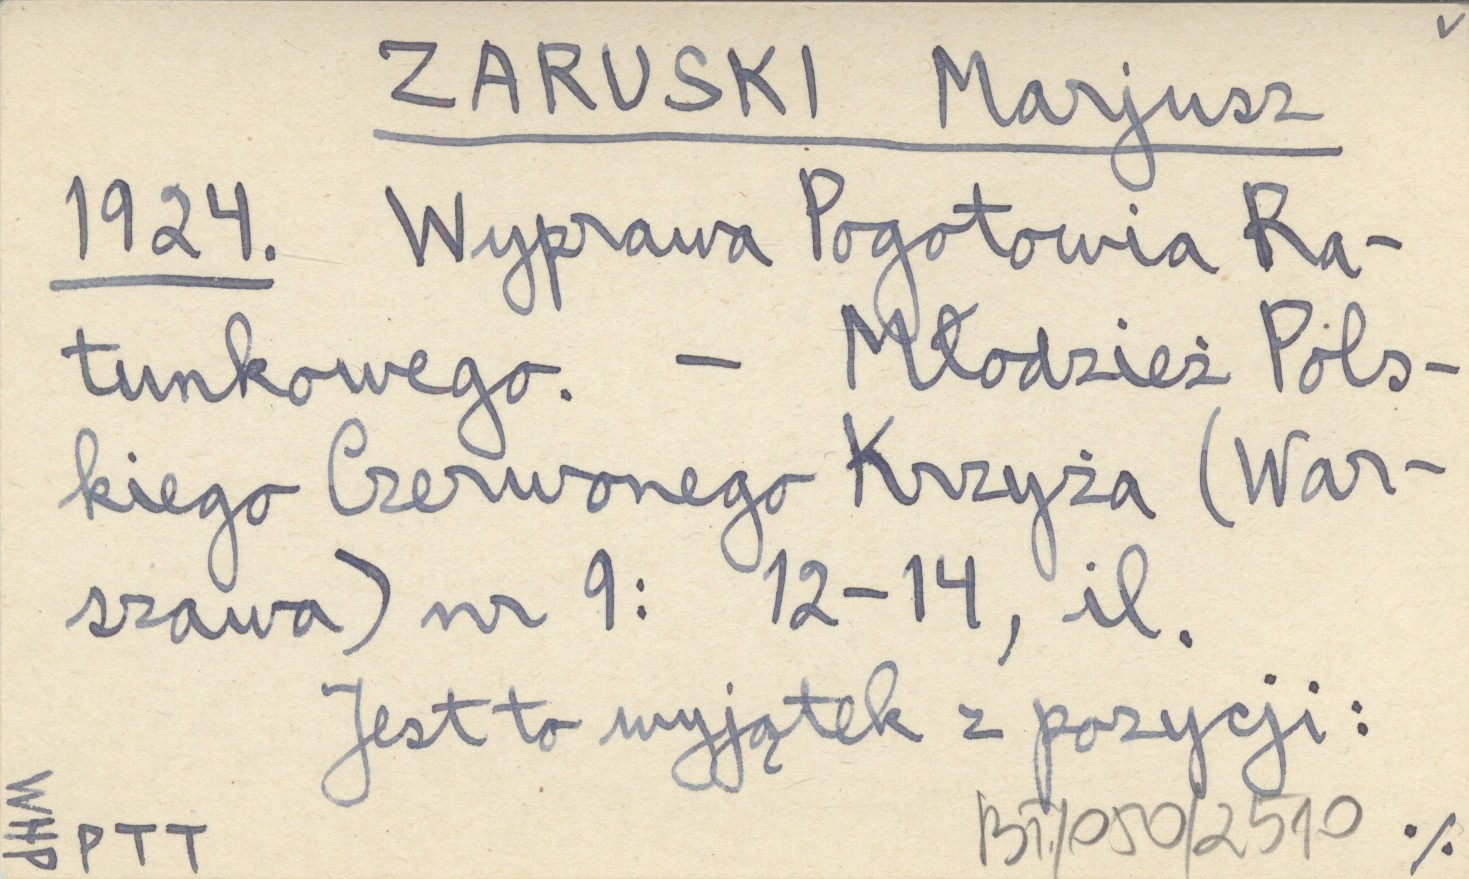 v
ZARUSKI Marjusz
1924. Wyprawa Pogotowia Ra-
tunkowego. — Młodzież Pols-
kiego Czerwonego Krzyża (War-
szawa) nr 9: 12-14, il.
Jest to wyjątek z pozycji:
WHP
PTT
BT/050/2510
./.